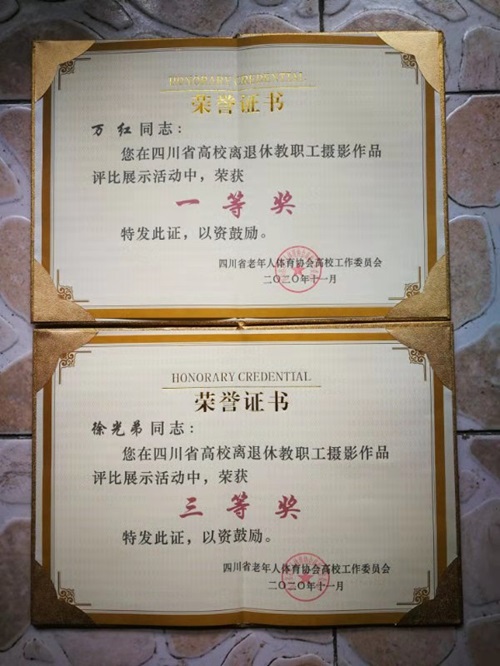 HONORARY CREDENTIAL
荣誉证书
万红同志：
您在四川省高校离退休教职工摄影作品
评比展示活动中，荣获
一等奖
特发此证，以资鼓励。
四川省老年人体育协会高校工作委员会
二〇二〇年十一月
HONORARY CREDENTIAL
荣誉证书
徐光弟同志：
您在四川省高校离退休教职工摄影作品
评比展示活动中，荣获
三等奖
特发此证，以资鼓励。
四川省老年人体育协会高校工作委员会
二〇二〇年十一月